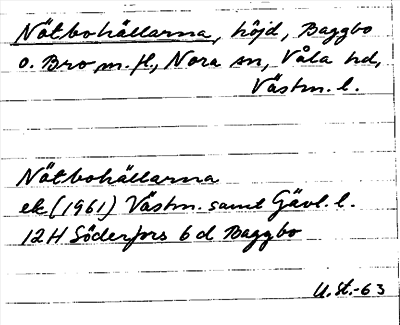 Nötbohällarna, höjd, Baggbo
o. Bro m. fl., Nora sn, Våla hd,
Västm. l.
Nötbohällarna
ek (1961) Västm. samt Gävl. l.
12H Söderfors 6 d Baggbo
U. St.-63